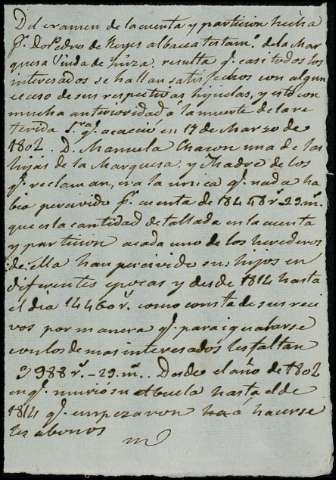 Del examen de la cuenta y particion hecha
pr. Dn. Pedro de Reyes albacea testamo. de la Mar
quesa Viuda de resulta qe. casi todos los
interesados se hallan satisfechos con algun
eceso de sus respectivas hijuelas, y esto con
mucha anterioridad a la muerte de la re
ferida Sra. qe. acaecio en 17 de Marzo de
1802. D. Manuela Chacon una de las
hijas de la Marquesa, y Madre de los
qe. reclaman, era la unica qe. nada ha
bia percivido pr. cuenta de 18458 rs. 29 m.
que es la cantidad detallada en la cuenta
y particion a cada uno de los herederos
de ella han percivido sus hijos en
diferentes epocas y desde 1814 hasta
el dia 14460 rs. como consta de sus reci
vos por manera qe. para igualarse
con los demas interesados les faltan
3988 rs. - 29 m. Desde el año de 1802
en qe. murió su abuela hasta el de
1814 qe. empezaron a hacerse
les abonos